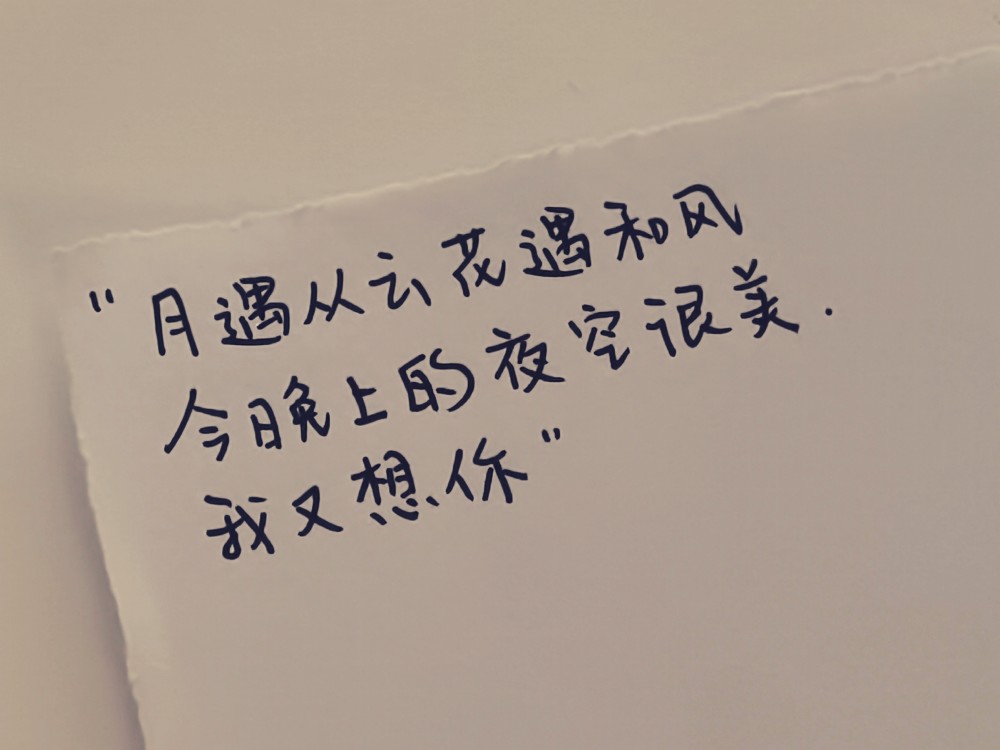 "月遇从云花遇和风
今晚上的夜空很美.
我又想你"